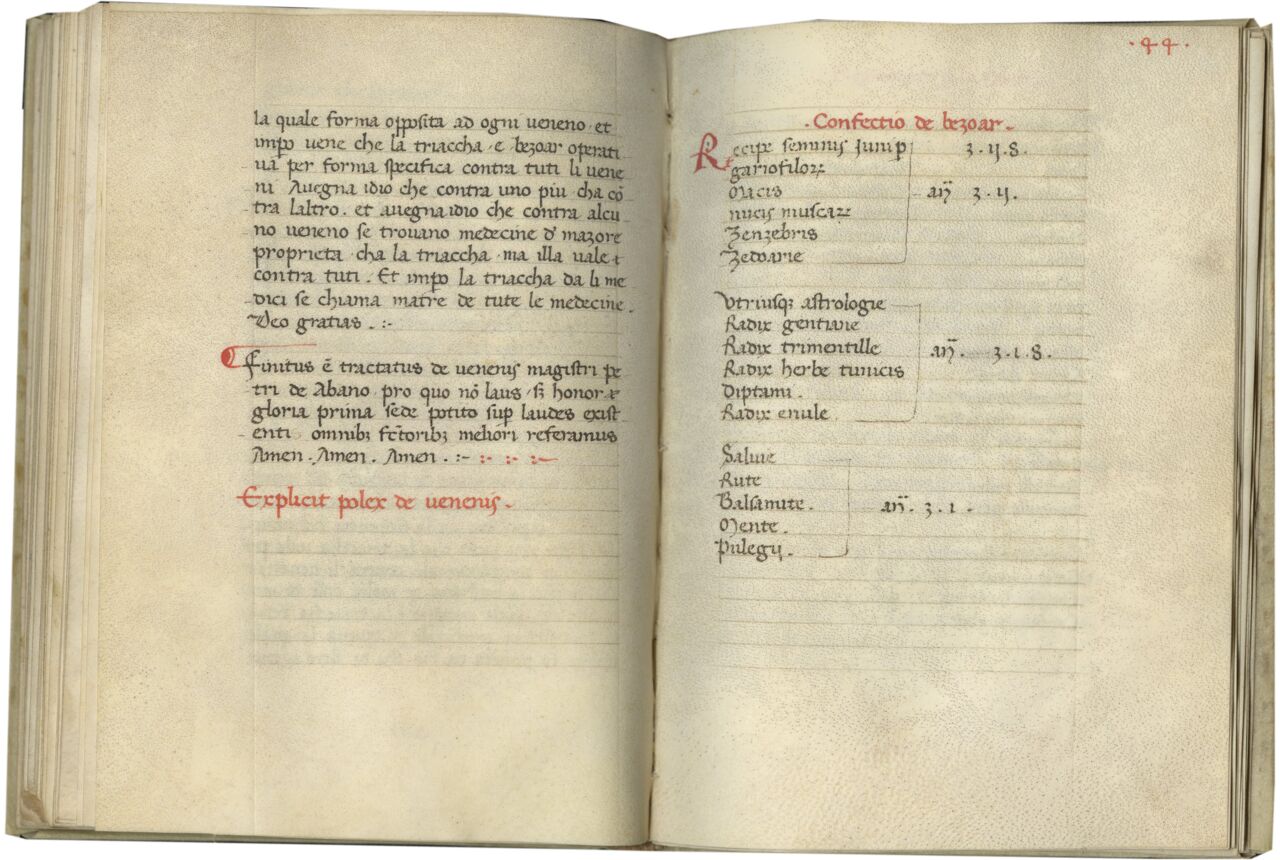 la quale forma opposita ad ogni veneno et
impo vene che la triaccha e bezoar operati
va per forma specifica contra tuti li vene
ni Avegna idio che contra uno piu cha cō
tra laltro. et avegna idio che contra alcu
no veneno se trovano medecine d' mazore
proprieta cha la triaccha ma illa vale
contra tuti. Et impo la triaccha da li me
dici se chiama matre de tute le medecine.
Deo gratias . :-
Finitus ē tractatus de venenis magistri pe
tri de Abano pro quo nō laus sꝫ honor
gloria prima sede potito sup laudes exist
enti omnibꝫ meliori referamus
Amen . Amen . Amen . :-
Explicit polex de venenis.
·44·
.Confectio de bezoar.
Recipe seminis Junip ʒ.ij.8.
gariofiloꝝ
Macis añ ʒ.ij.
nucis muscaꝝ
Zenzebris
Zedoarie
Vtriusqꝫ astrologie
Radix gentiane
Radix trimentille añ. ʒ.i.8.
Radix herbe tunicis
Diptami.
Radix enule.
Salvie
Rute
Balsamite. añ. ʒ.i.
Mente.
Pulegij.